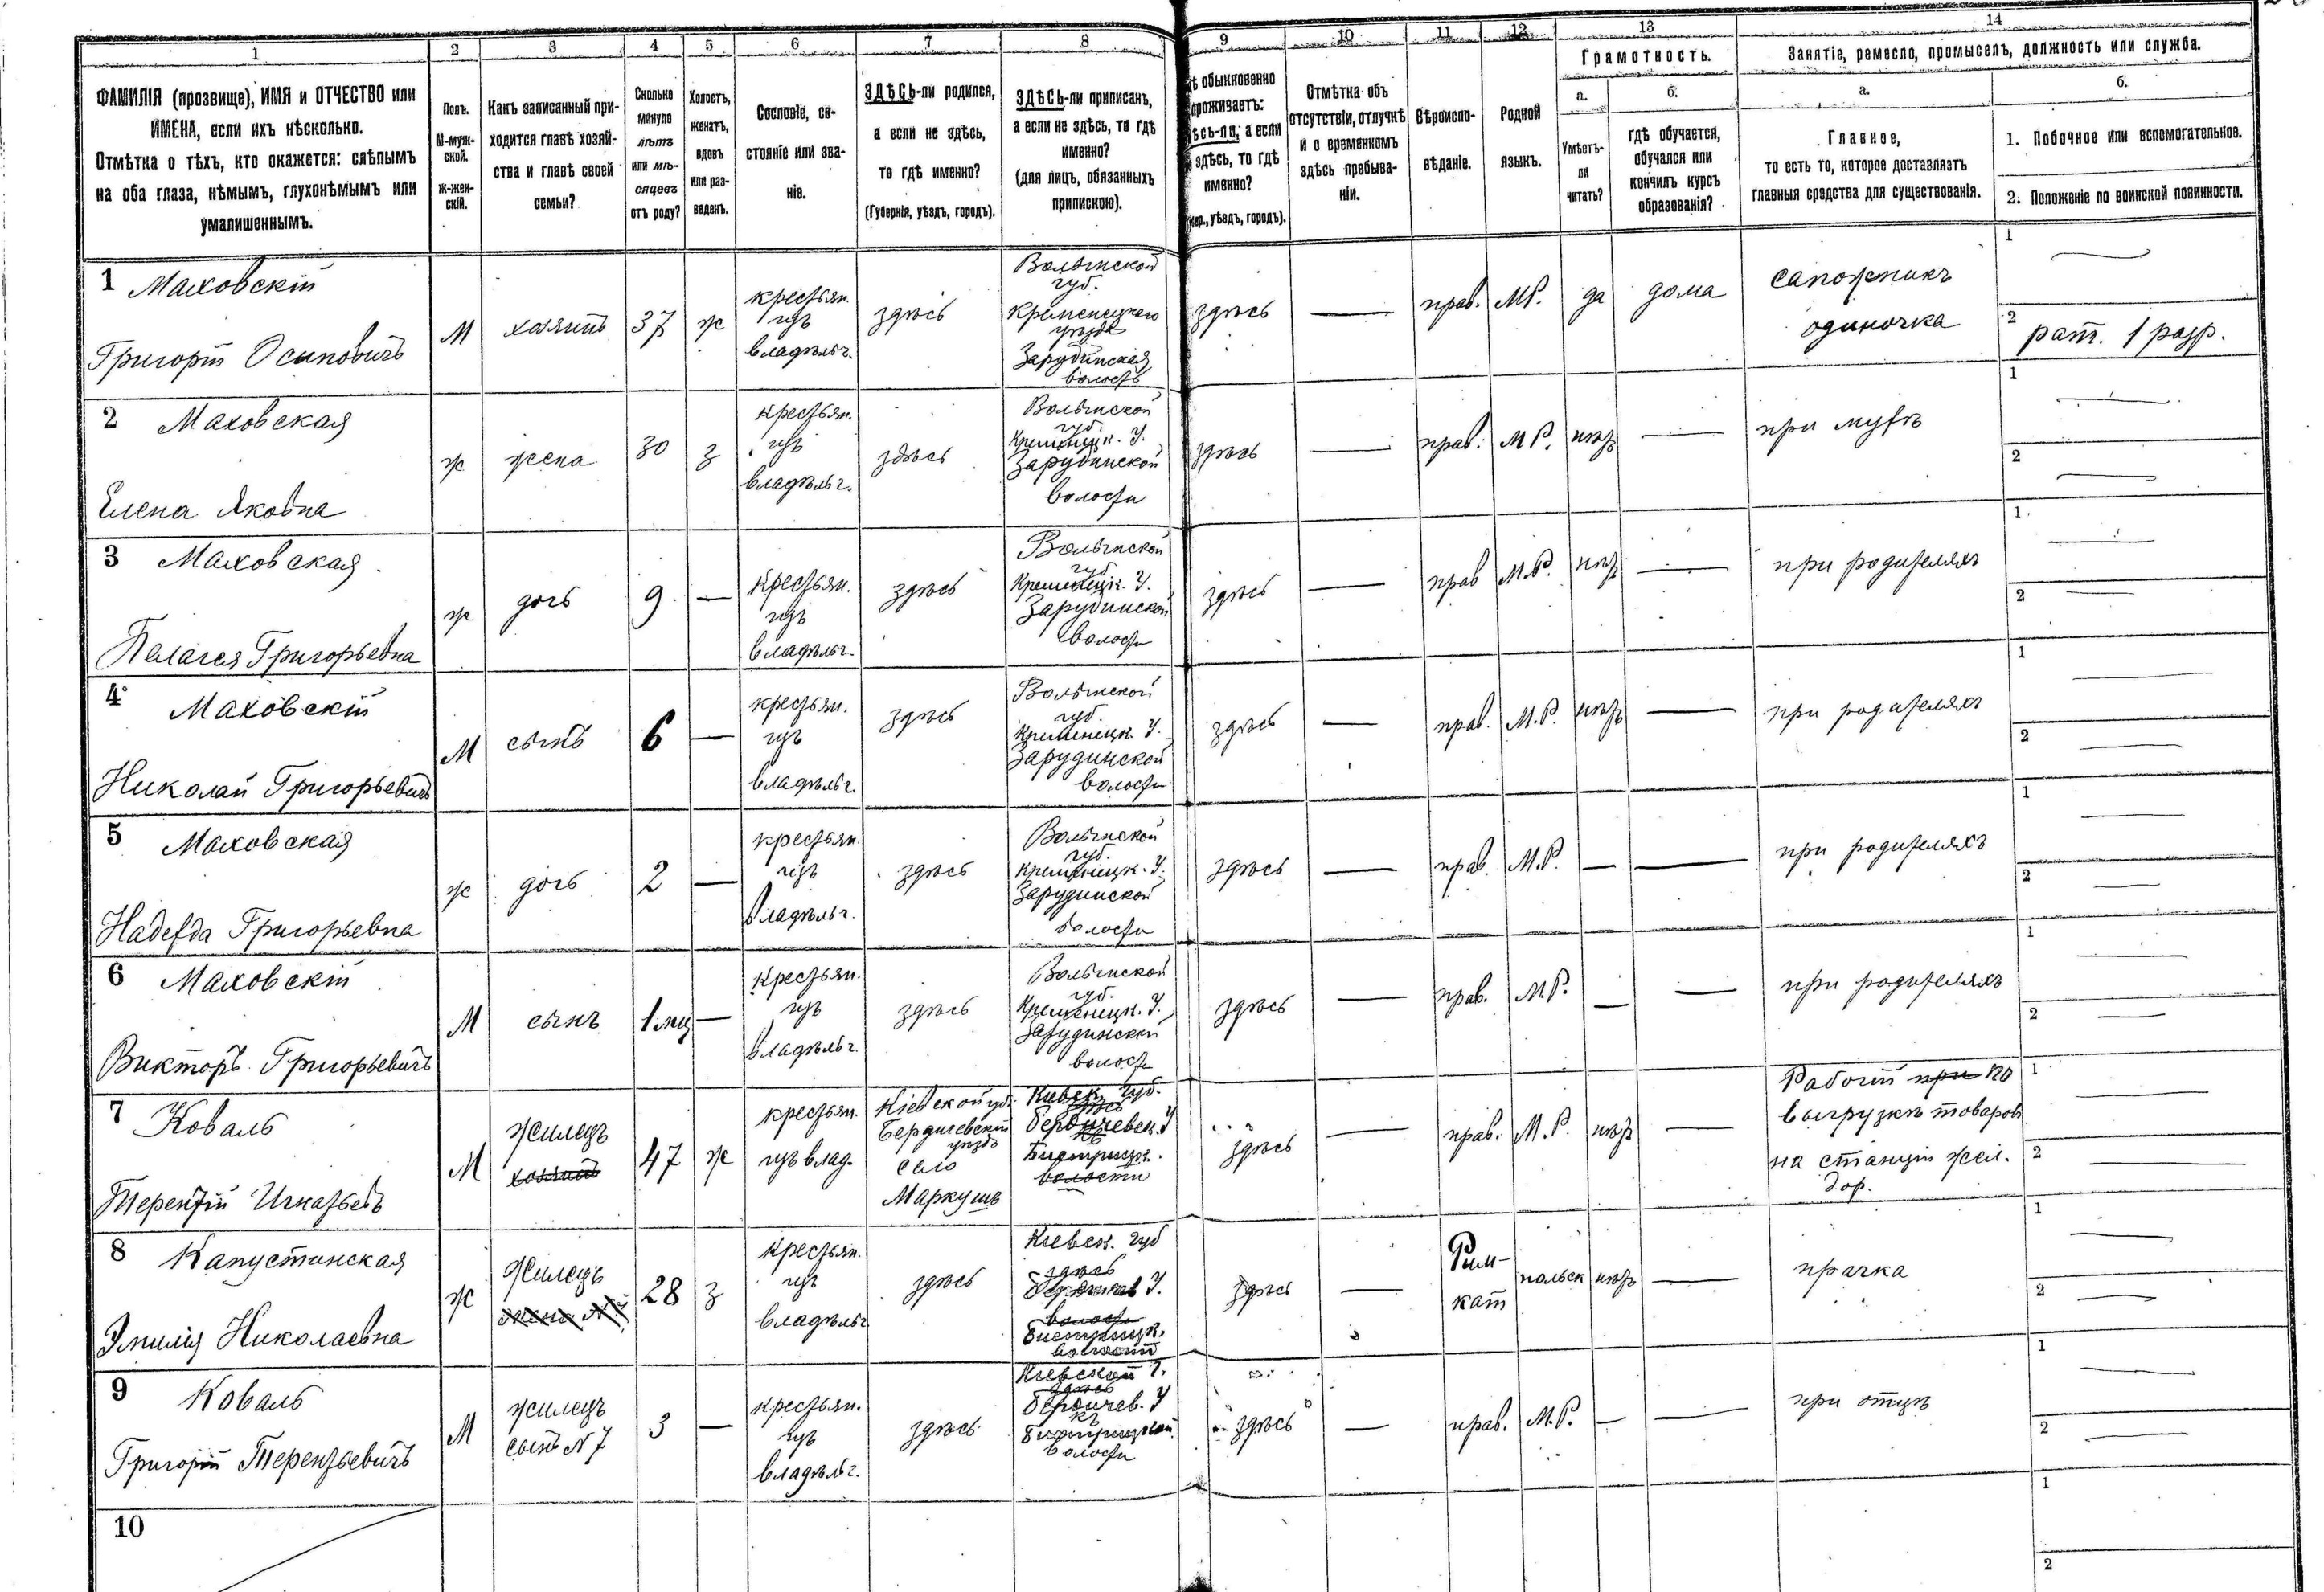 1
2
3
4
5
6
7
8
9
10
11
12
13
14
ФАМИЛІЯ (прозвище), ИМЯ и ОТЧЕСТВО или
ИМЕНА, если ихъ нѣсколько.
Отмѣтка о тѣхъ, кто окажется: слѣпымъ
на оба глаза, нѣмымъ, глухонѣмымъ или
умалишеннымъ.
Полъ.
М-муж-
ской.
Ж-жен-
скій.
Какъ записанный при-
ходится главѣ хозяй-
ства и главѣ своей
семьи?
Сколько
минуло
лѣтъ
или мѣ-
сяцевъ
отъ роду?
Холостъ,
женатъ,
вдовъ
или раз-
веденъ.
Сословіе, со-
стояніе или зва-
ніе.
ЗДѢСЬ-ли родился,
а если не здѣсь,
то гдѣ именно?
(Губернія, уѣздъ, городъ).
ЗДѢСЬ-ли приписанъ,
а если не здѣсь, то гдѣ
именно?
(для лицъ, обязанныхъ
припискою).
ѣ обыкновенно
проживаетъ:
ѣсь-ли, а если
здѣсь, то гдѣ
именно?
уѣздъ, городъ).
Отмѣтка объ
отсутствіи, отлучкѣ
и о временномъ
здѣсь пребыва-
ніи.
Вѣроиспо-
вѣданіе.
Родной
языкъ.
Грамотность.
а.
Умѣетъ-
ли
читать?
б.
гдѣ обучается,
обучался или
кончилъ курсъ
образованія?
Занятіе, ремесло, промыселъ, должность или служба.
а.
Главное,
то есть то, которое доставляетъ
главныя средства для существованія.
б.
1. Побочное или вспомогательное.
2. Положеніе по воинской повинности.
1 Маховскій
Григорій Осиповичъ
М
хозяинъ
37
ж
крестьян.
изъ
владѣльч.
здѣсь
Волынской
губ.
Кременецкаго
уѣзда
Зарудинская
волость
здѣсь
—
прав.
М.Р.
да
дома
сапожникъ
одиночка
1 —
2 рат. 1 разр.
2 Маховская
Елена Яковна
ж
жена
30
з
крестьян.
изъ
владѣльч.
здѣсь
Волынской
губ.
Кременецк. У.
Зарудинской
волости
здѣсь
—
прав.
М.Р.
нѣт
—
при мужѣ
1 —
2 —
3 Маховская
Пелагея Григорьевна
ж
дочь
9
—
крестьян.
изъ
владѣльч.
здѣсь
Волынской
губ.
Кременецк. У.
Зарудинской
волости
здѣсь
—
прав
М.Р.
нѣт
—
при родителяхъ
1 —
2 —
4 Маховскій
Николай Григорьевичъ
М
сынъ
6
—
крестьян.
изъ
владѣльч.
здѣсь
Волынской
губ.
Кременецк. У.
Зарудинской
волости
здѣсь
—
прав.
М.Р.
нѣтъ
—
при родителяхъ
1 —
2 —
5 Маховская
Надежда Григорьевна
ж
дочь
2
—
крестьян.
изъ
владѣльч.
здѣсь
Волынской
губ.
Кременецк. У.
Зарудинской
волости
здѣсь
—
прав.
М.Р.
—
—
при родителяхъ
1 —
2 —
6 Маховскій
Викторъ Григорьевичъ
М
сынъ
1 мц
—
крестьян.
изъ
владѣльч.
здѣсь
Волынской
губ.
Кременецк. У.
Зарудинской
волости
здѣсь
—
прав.
М.Р.
—
—
при родителяхъ
1 —
2 —
7 Коваль
Терентій Игнатьевъ
М
жилецъ
хозяинъ
47
ж
крестьян.
изъ влад.
Кіевской губ.
Бердичевскій
уѣздъ
село
Маркушъ
Киевск. губ.
Бердичевск. У
Бистрицк.
волости
здѣсь
—
прав.
М.Р.
нѣт
—
Рабочій при по
выгрузкѣ товаровъ
на станціи жел.
дор.
1 —
2 —
8 Капустинская
Эмилія Николаевна
ж
жилецъ
жена №7
28
з
крестьян.
изъ
владѣльч
здѣсь
Киевск. губ
здѣсь
У.
волости
Бистрицк.
волости
здѣсь
—
Рим-
кат
польск
нѣтъ
—
прачка
1 —
2 —
9 Коваль
Григорій Терентьевичъ
М
жилецъ
сынъ №7
3
—
крестьян.
изъ
владѣльч.
здѣсь
Киевской Г.
здѣсь
Бердичев. У
Бистрицкой
волости
здѣсь
—
прав.
М.Р.
—
—
при отцѣ
1 —
2 —
10
1
2